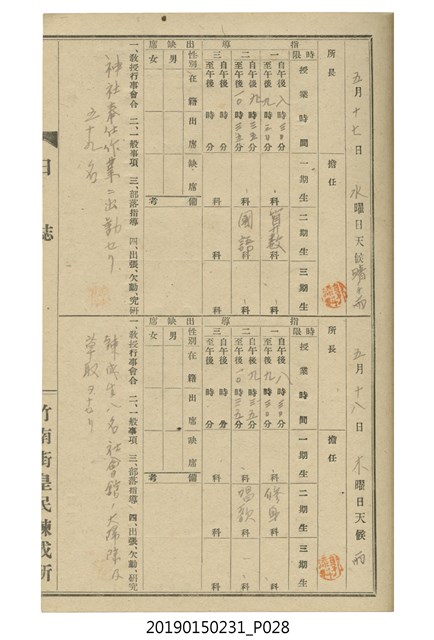 五月十七日 水曜日 天候 晴
所長 擔任
指導
時限 授業時間 一期生 二期生 三期生
一 自午後八時三〇分 至午後九時二〇分 科 算数科 科
二 自午後九時三五分 至午後一〇時三五分 科 國語科 科
三 自午後 時 分 至午後 時 分 科 科 科
出缺席
性別 在籍 出席 缺席 備考
男
女
一、教授行事會合 二、一般事項 三、部落指導 四、出張、欠勤、究研
神社奉仕作業ニ出動セリ
五十九名
日誌
五月十八日 木曜日 天候 雨
所長 擔任
指導
時限 授業時間 一期生 二期生 三期生
一 自午後八時三〇分 至午後九時二〇分 科 修身科 科
二 自午後九時三五分 至午後一〇時三五分 科 唱歌科 科
三 自午後 時 分 至午後 時 分 科 科 科
出缺席
性別 在籍 出席 缺席 備考
男
女
一、教授行事會合 二、一般事項 三、部落指導 四、出張、欠勤、究研
錬成生八名社會館ノ大掃除及
草取ヲナセリ
竹南街皇民錬成所
20190150231_P028